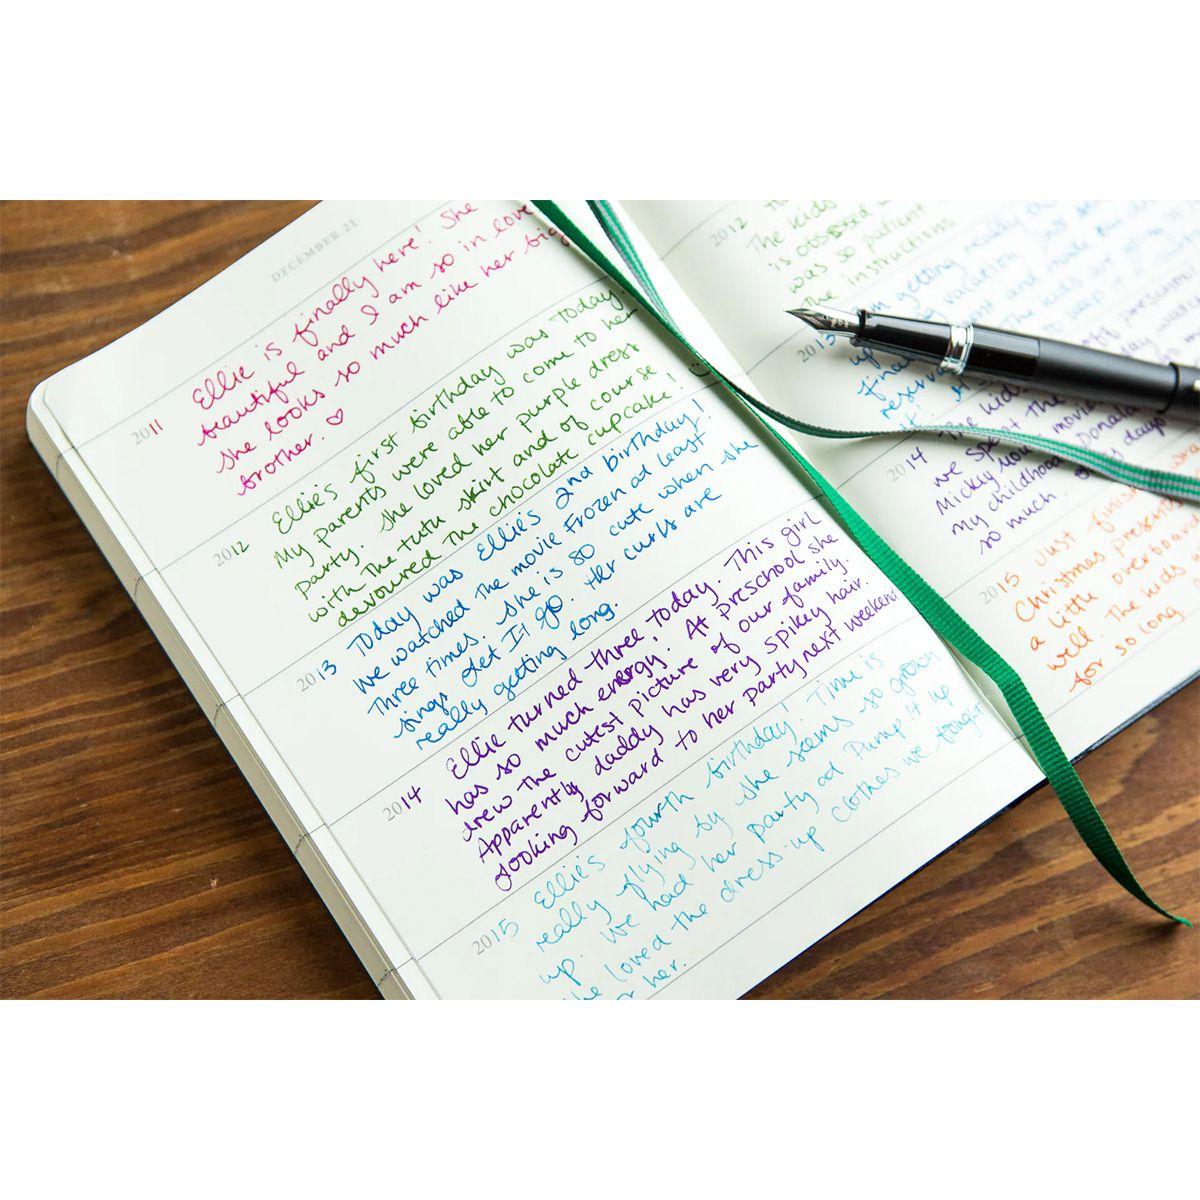 DECEMBER 21
2011 Ellie is finally here! She
beautiful and I am so in love
she looks so much like her big
brother. ♡
2012 Ellie's first birthday was today.
My parents were able to come to her
party. She loved her purple dress
with the tutu skirt and of course
devoured the chocolate cupcake!
2013 Today was Ellie's 2nd birthday!
We watched the movie Frozen at least
three times. She is so cute when she
sings Let It go. Her curls are
really getting long.
2014 Ellie turned three today. This girl
has so much energy. At preschool she
drew the cutest picture of our family.
Apparently daddy has very spikey hair.
Looking forward to her party next weekend
2015 Ellie's fourth birthday! Time is
really flying by she seems so grown
up. We had her party at Pump It Up
she loved the dress-up clothes we bought
for her.
2012
The kids
is obsessed
was so patient
the instructions
2013 getting ready
vacation
and
reservat
2014 The kids
we spent the movie
Mickey Mou Donald
my childhood days
so much.
2015 Just finish
Christmas presents
a little overboard
well. The kids
for so long